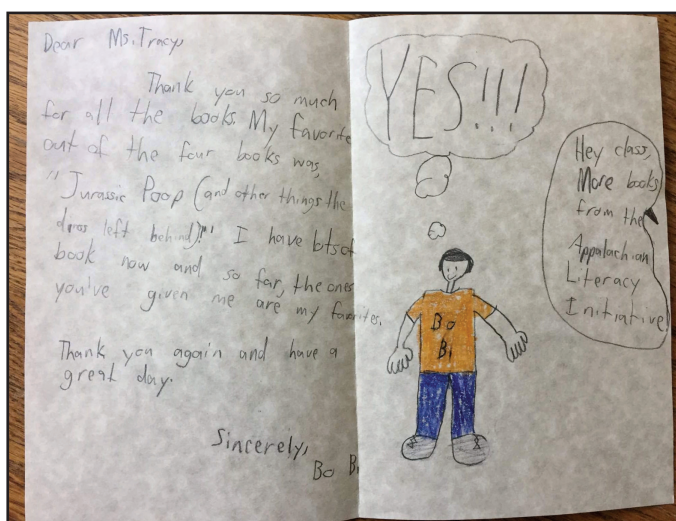 Dear Ms. Tracy,
Thank you so much
for all the books. My favorite
out of the four books was,
"Jurassic Poop (and other things the
dinos left behind)!" I have lots of
book now and so far, the ones
you've given me are my favorites.
Thank you again and have a
great day.
Sincerely,
Bo Bi
YES!!!
Bo
Bi
Hey class,
More books
from the
Appalachian
Literacy
Initiative